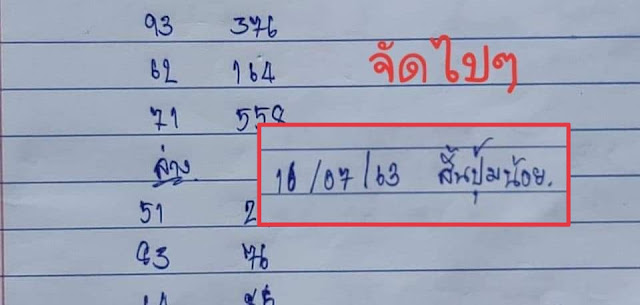 93 376
62 164
จัดไปๆ
71 558
ล่าง
16/07/63 สิ้นปุ้มน้อย.
51 2
93 76